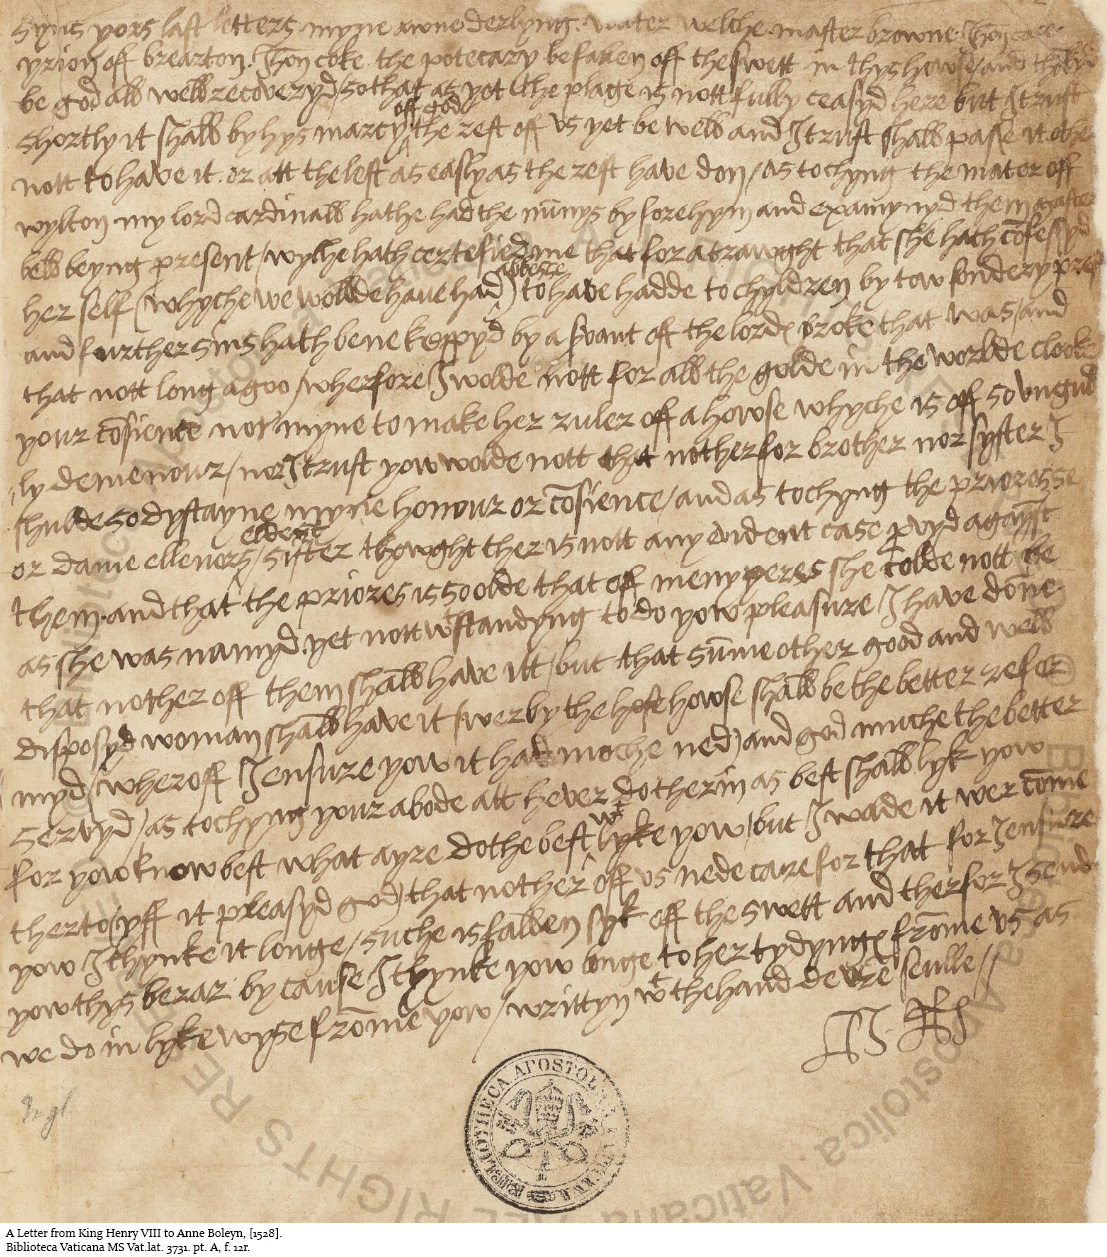 Syns yors last letters myne awne derlyng water welche master browne Jhon care
yrion off brearton Jhon coke the potecary be fallen off the swett in thys howse / and
be god all well recoveryd / so that as yet the plage is nott fully ceasyd here but I trust
off god
shortly it shall by hys marcy the rest off us yet be well and I trust shall passe it other
nott to have it or att the lest as easly as the rest have don / as tochyng the mater off
wylton my lord cardinall hathe had the nunys by fore hym and examynyd them master
bell beyng present / wyche hath certefied me that for a trawght that she hath cōfessyd
abbesse
her self (whyche we wollde have had) to have hadde to chyldren by tow sondery
and further sins hath bene keppyd by a svant off the lord broke that was / and
that nott long agoo / wherfore I wolde nott for all the golde in the worlde clooke
your cōsience nor myne to make her ruler off a howse whyche is off so ungud
ly demenour / nor I trust yow wolde nott that nother for brother nor syster I
shulde so dystayne myne honour or cōsience / and as tochyng the prioresse
eldest
or dame ellenors sister thowght ther is nott any evident case pvyd agaynst
them and that the priores is so olde that off meny yeres she colde nott be
as she was namyd yet nott wtstandyng to do yow pleasure I have dōne
that nother off them shall have itt / but that sūme other good and well
disposyd woman shall have it / werby the howse shall be the better refor
myd / wheroff I ensure yow it had moche ned) and god muche the better
servyd / as tochyng your abode att hever do therin as best shall lyk yow
wt
for yow know best what ayre dothe best lyke yow / but I wade it wer cōme
therto (yff it pleasyd god) that nother off us nede care for that for I ensure
yow I thynke it longe / suche is fallen syk off the swett and therfor I send
yow thys berar by cause I thynke yow longe to her tydyngs frōme us as
we do in lyke wyse frōme yow / writtyn wt the hand de vtre seulle //
H. Rx
Engl.
BIBLIOTHECA APOSTOLICA VATICANA
© Biblioteca Apostolica Vaticana ALL RIGHTS RESERVED
A Letter from King Henry VIII to Anne Boleyn, [1528].
Biblioteca Vaticana MS Vat.lat. 3731. pt. A, f. 12r.